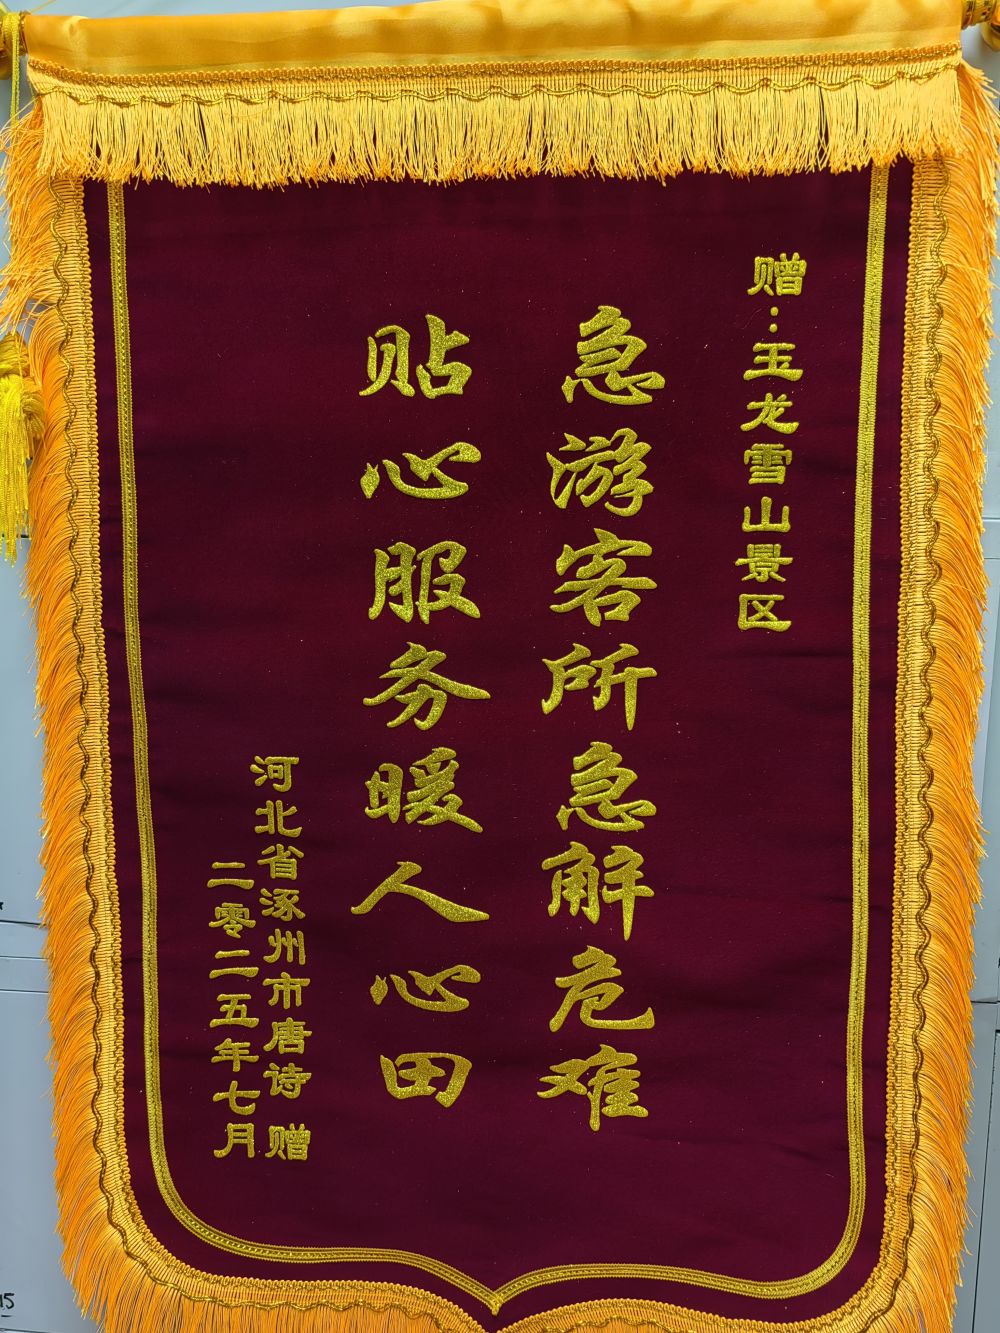 赠：玉龙雪山景区
急游客所急解危难
贴心服务暖人心田
河北省涿州市唐诗 赠
二零二五年七月
15